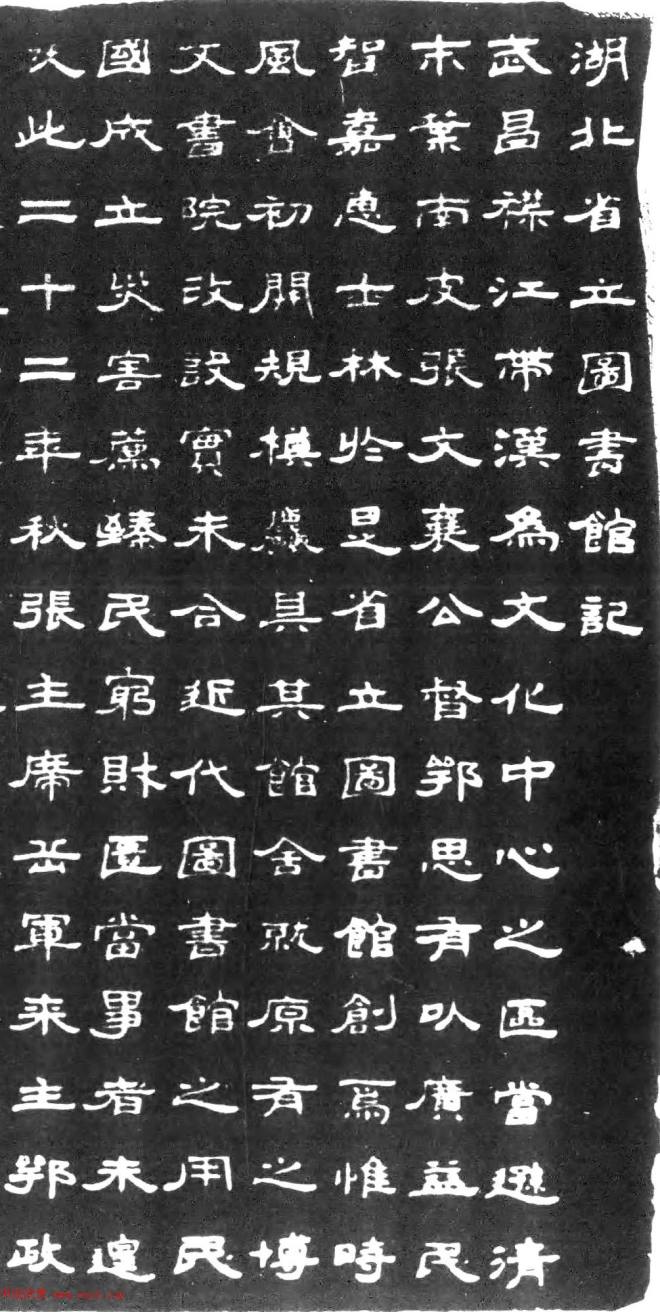 湖北省立圖書館記
武昌襟江帶漢為文化中心之區當遜清
末葉南皮張文襄公督鄂思有以廣益民
智嘉惠士林於是省立圖書館創焉惟時
風會初開規模麤具其館舍就原有之博
文書院改設實未合近代圖書館之用民
國成立災害薦臻民窮財匱當事者未遑
及此二十二年秋張主席岳軍来主鄂政